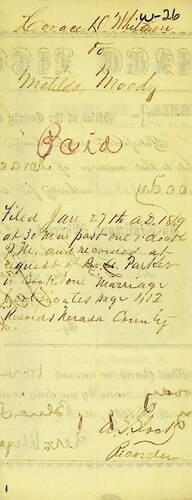 W-26
Horace W.
To
Matilda Moody
Paid
Filed Jan. 27th A.D. 1869
at 30 min past one o'clock
P.M. and recorded at
request of Parker
in Book one Marriage
Certificates page 412
Records Nevada County
Recorder